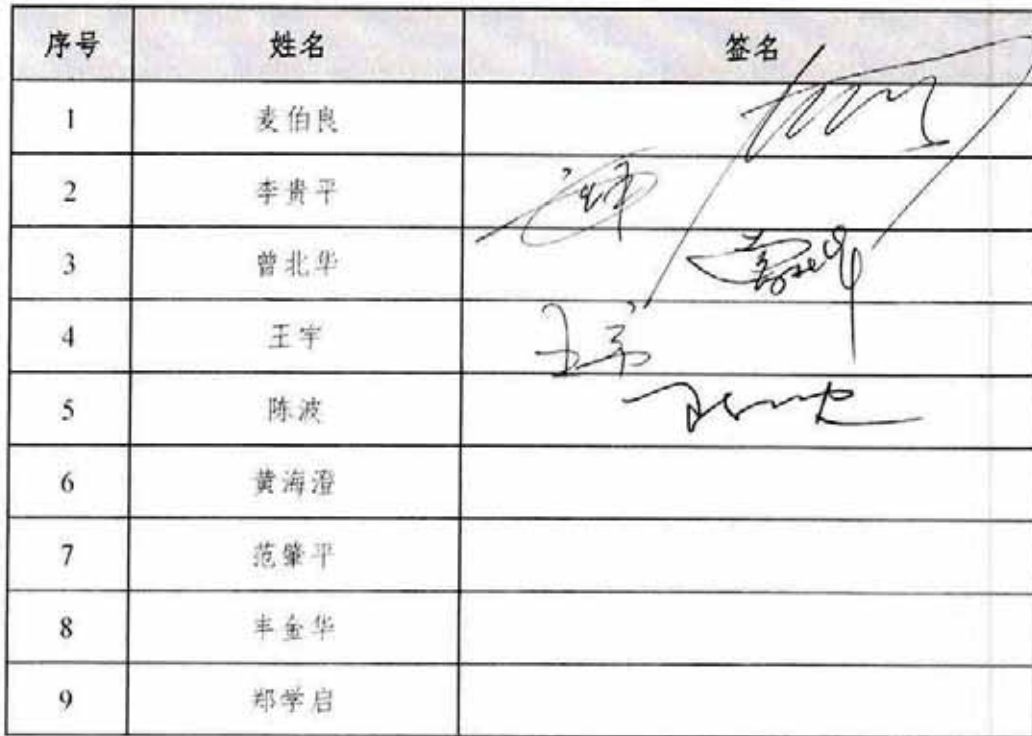 序号 姓名 签名
1 麦伯良
2 李贵平
3 曾北华
4 王宇 王宇
5 陈波
6 黄海澄
7 范肇平
8 丰金华
9 郑学启